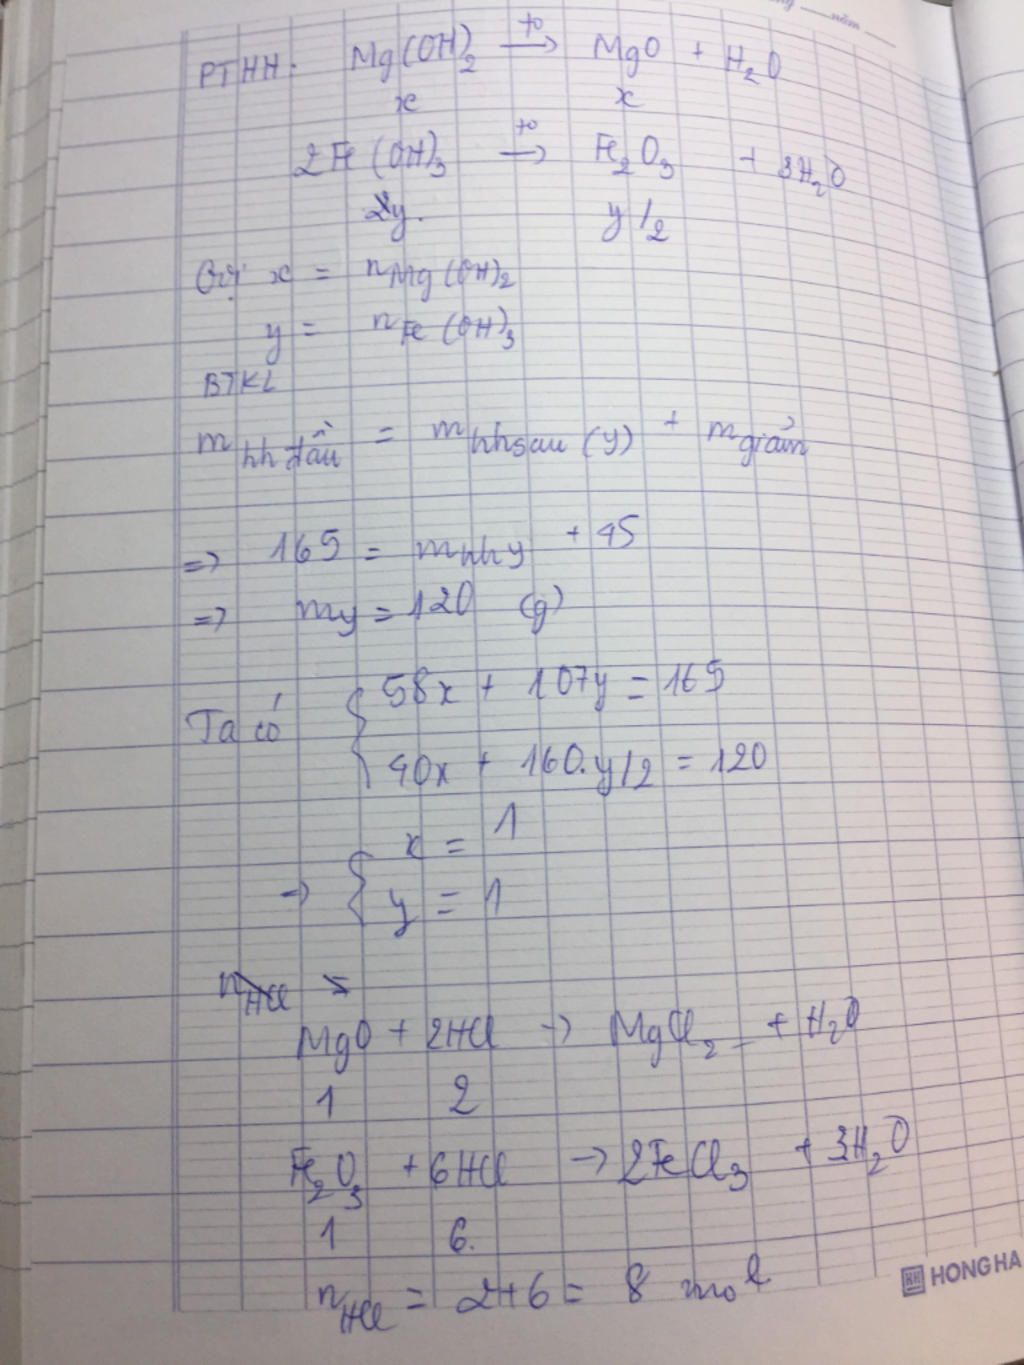 năm
PTHH: Mg(OH)₂ —t⁰→ MgO + H₂O
x x
2Fe(OH)₃ —t⁰→ Fe₂O₃ + 3H₂O
y. y/2
Gọi x = nMg(OH)₂
y = nFe(OH)₃
BTKL
m hh đầu = m hh sau (y) + m giảm
=> 165 = m hh y + 45
=> my = 120 (g)
Ta có { 58x + 107y = 165
40x + 160.y/2 = 120
=> { x = 1
y = 1
nHCl =
MgO + 2HCl → MgCl₂ + H₂O
1 2
Fe₂O₃ + 6HCl → 2FeCl₃ + 3H₂O
1 6.
nHCl = 2+6 = 8 mol
HH HONG HA